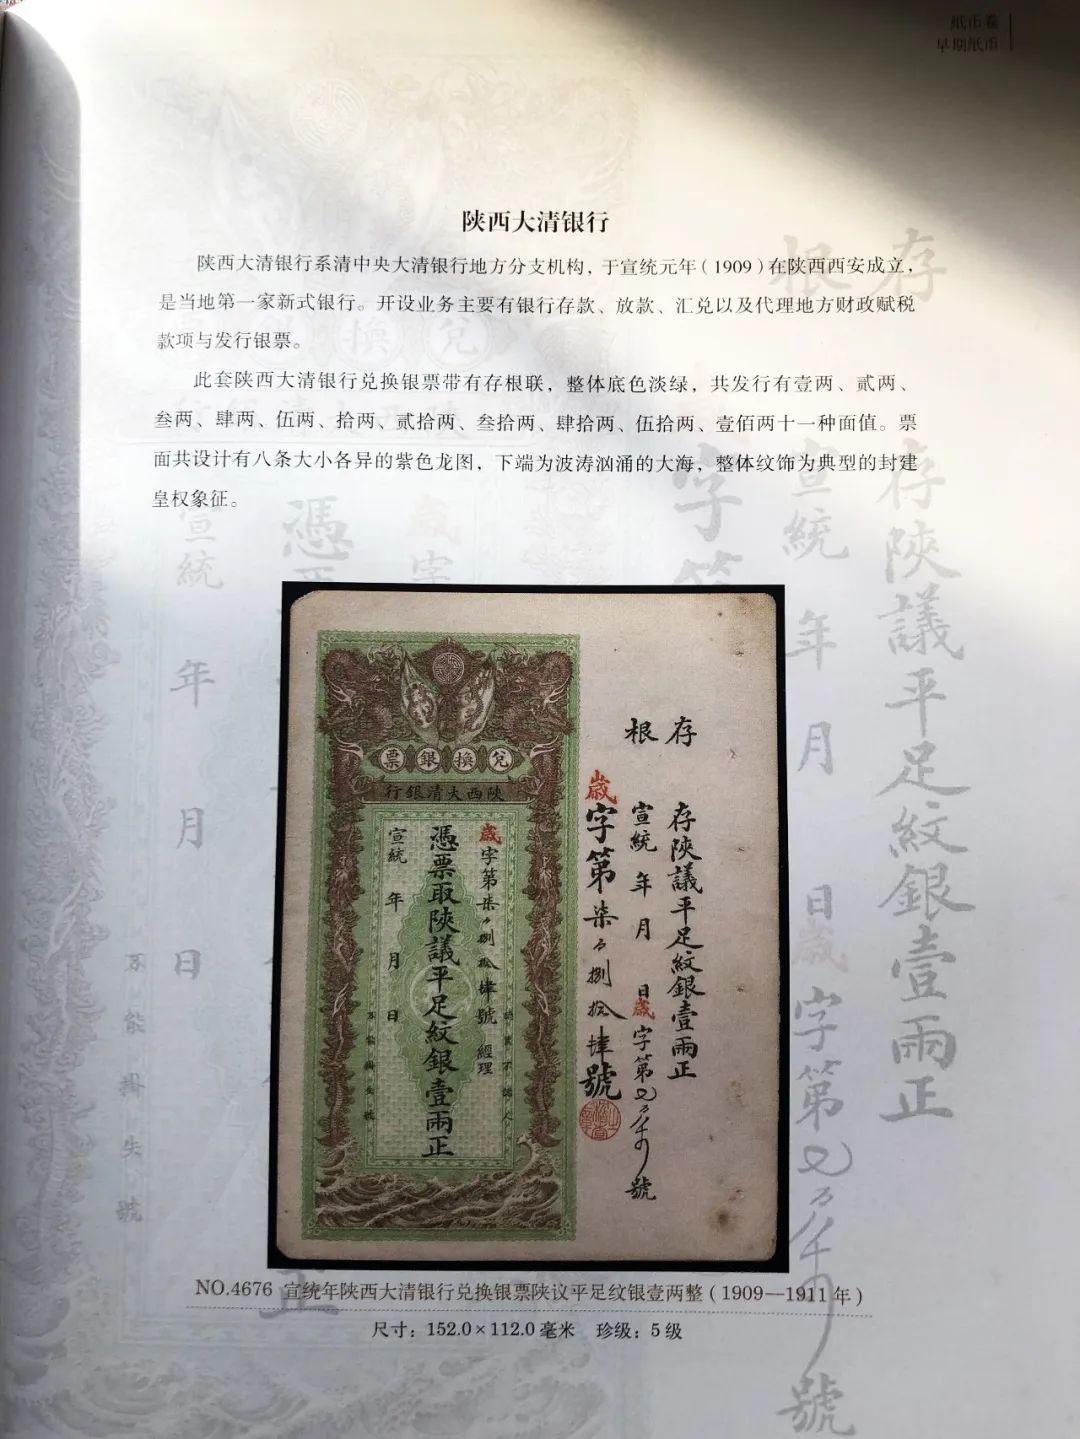 纸币卷
早期纸币
陕西大清银行
陕西大清银行系清中央大清银行地方分支机构，于宣统元年（1909）在陕西西安成立，
是当地第一家新式银行。开设业务主要有银行存款、放款、汇兑以及代理地方财政赋税
款项与发行银票。
此套陕西大清银行兑换银票带有存根联，整体底色淡绿，共发行有壹两、贰两、
叁两、肆两、伍两、拾两、贰拾两、叁拾两、肆拾两、伍拾两、壹佰两十一种面值。票
面共设计有八条大小各异的紫色龙图，下端为波涛汹涌的大海，整体纹饰为典型的封建
皇权象征。
兌換銀票
陝西大清銀行
歲字第柒捌拾肆號 經理
憑票取陝議平足紋銀壹兩正
宣統 年 月 日
不能掛失號
存根
存陝議平足紋銀壹兩正
宣統 年 月 日歲字第 號
歲字第柒捌拾肆號
NO.4676 宣统年陕西大清银行兑换银票陕议平足纹银壹两整（1909—1911年）
尺寸：152.0×112.0毫米 珍级：5级
存根
存陝議平足紋銀壹兩正
宣統 年 月 日歲字第 號
字第
兌換
歲字
憑
宣統 年 月 日
不能掛失號
正